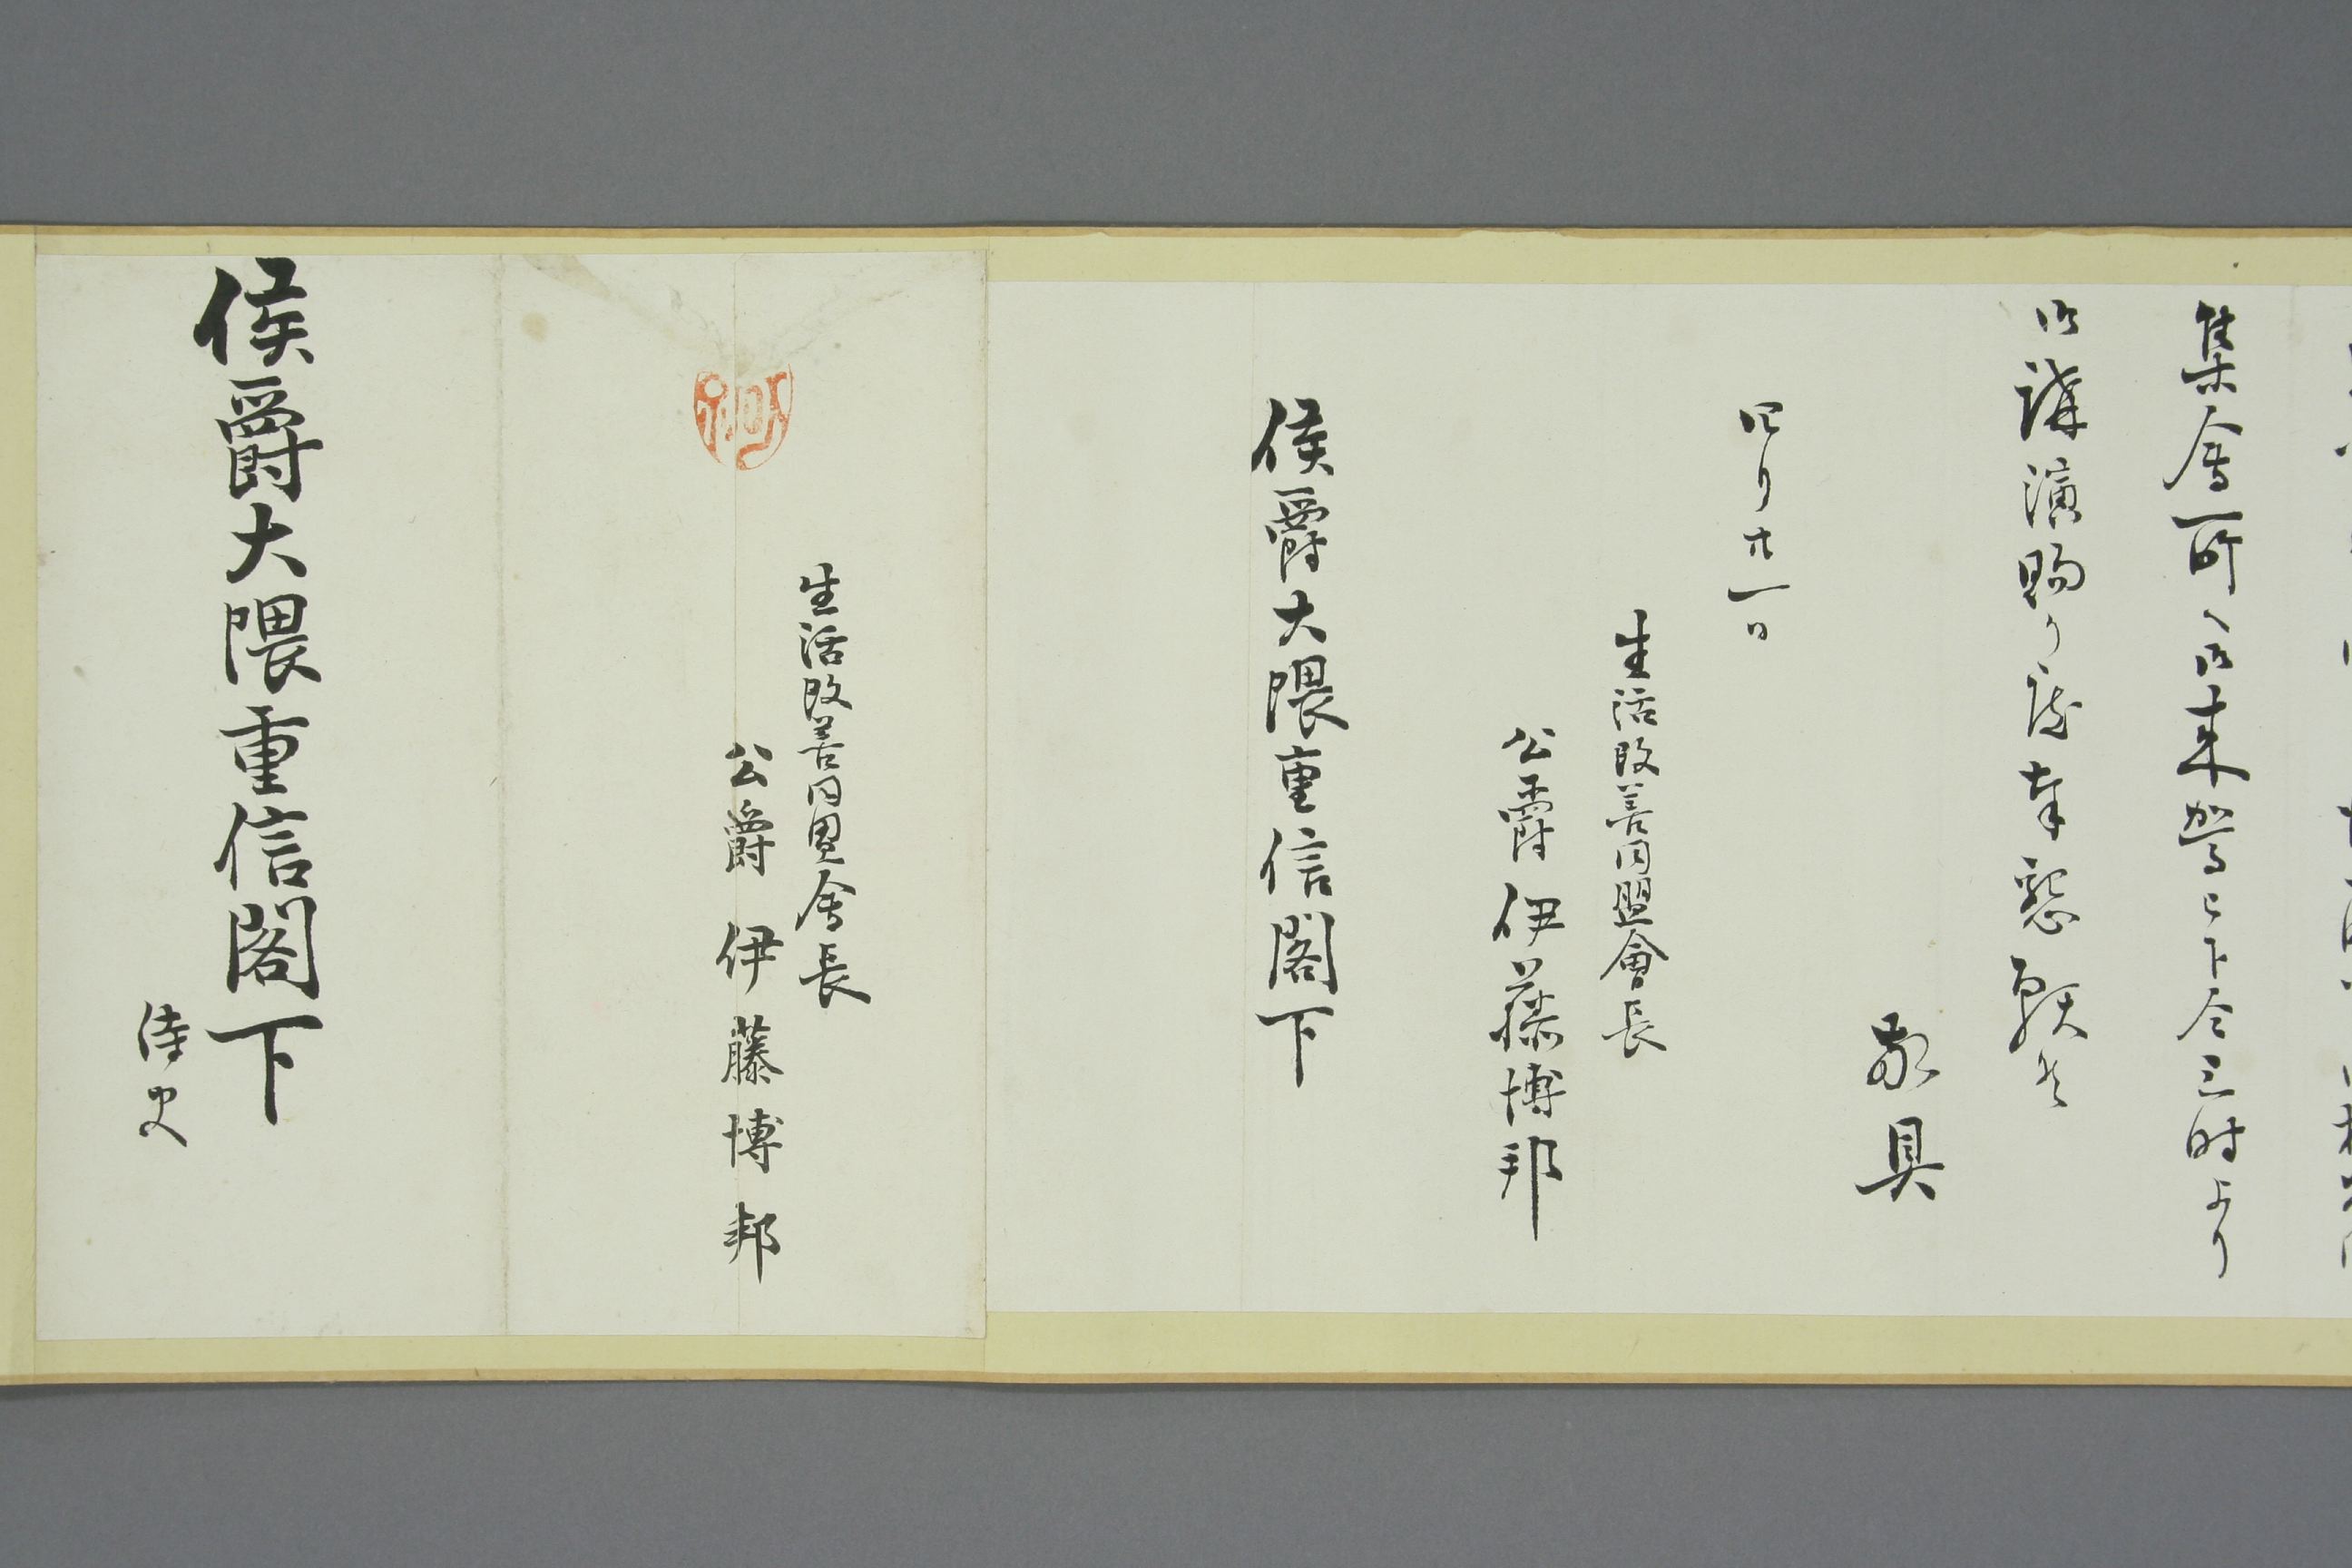 集會所へ御来駕被下全三時より
御講演賜り度奉懇願候
敬具
四月廿一日
生活改善同盟會長
公爵伊藤博邦
侯爵大隈重信閣下
生活改善同盟會長
公爵伊藤博邦
侯爵大隈重信閣下
侍史